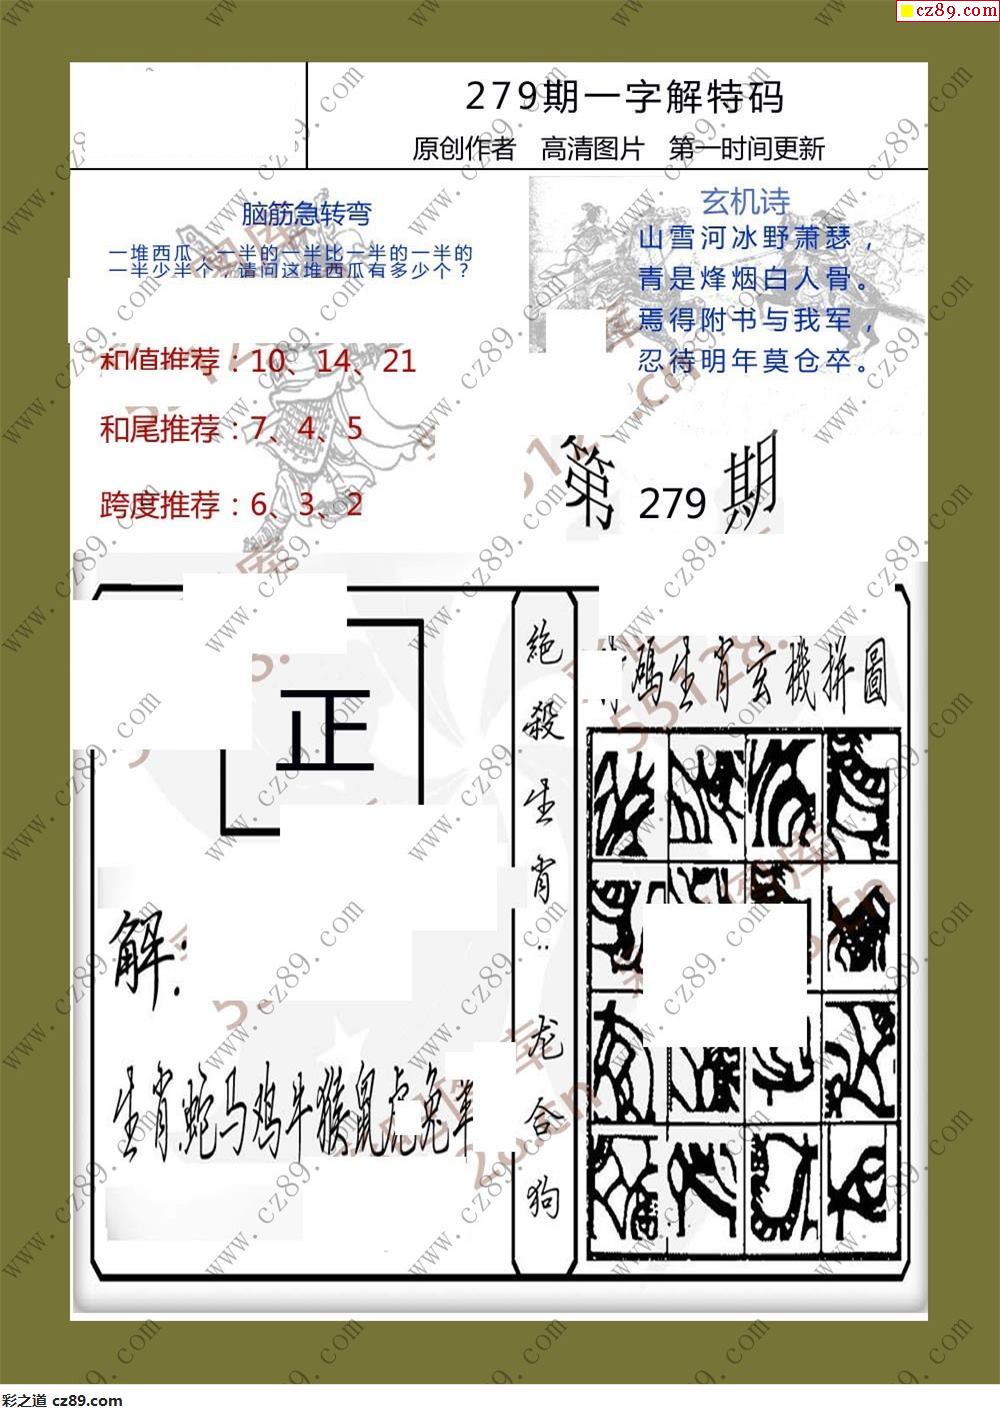 cz89.com
279期一字解特码
原创作者 高清图片 第一时间更新
脑筋急转弯
一堆西瓜，一半的一半比一半的一半的
一半少半个，请问这堆西瓜有多少个？
玄机诗
山雪河冰野萧瑟，
青是烽烟白人骨。
焉得附书与我军，
忍待明年莫仓卒。
和值推荐：10、14、21
和尾推荐：7、4、5
跨度推荐：6、3、2
第 279 期
正
解：
生肖蛇马鸡牛猴鼠虎兔羊
絶殺生肖：龙合狗
碼生肖玄機拼圖
www.cz89.com
彩之道 cz89.com